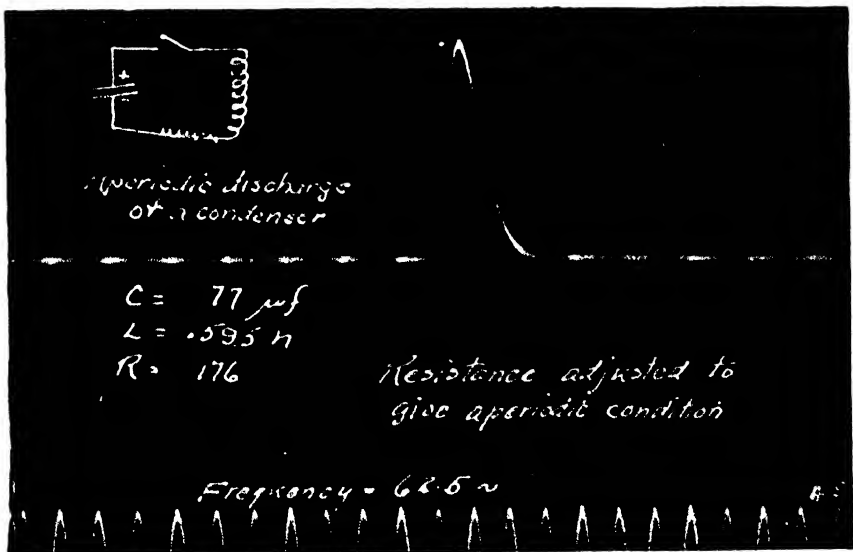 Aperiodic discharge
of a condenser
C = 77 µf
L = .595 h
R = 176
Resistance adjusted to
give aperiodic condition
Frequency = 62.5 ~